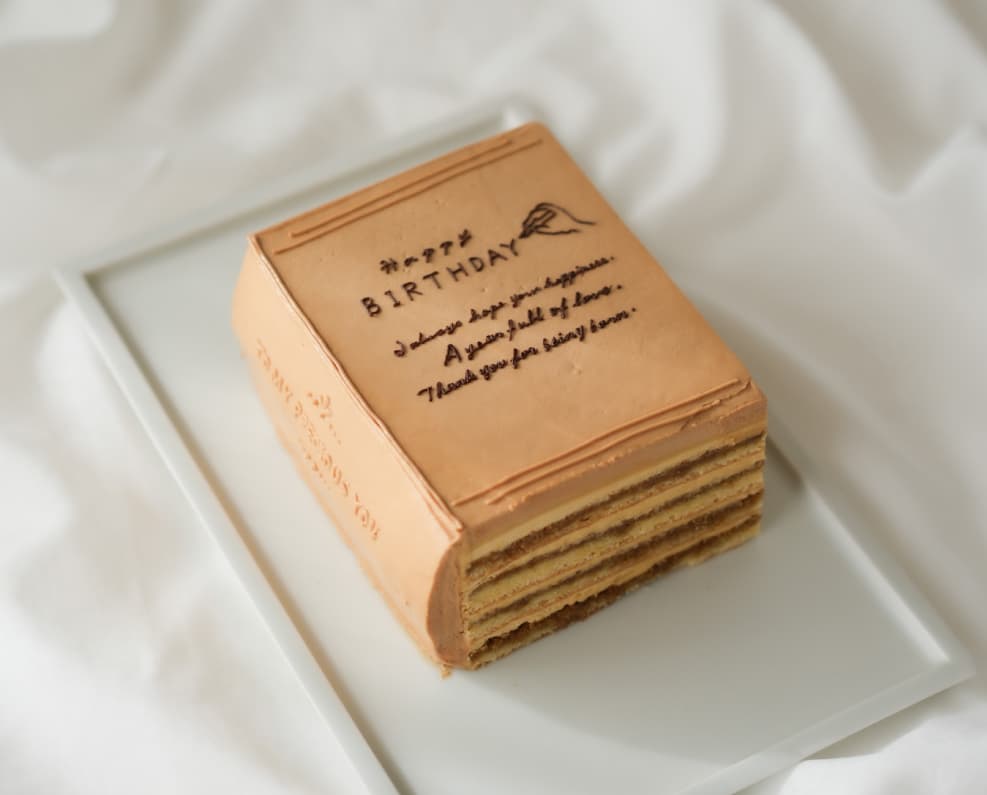 Happy
BIRTHDAY
I always hope your happiness.
A year full of love.
Thank you for being born.
TO MY PRECIOUS YOU